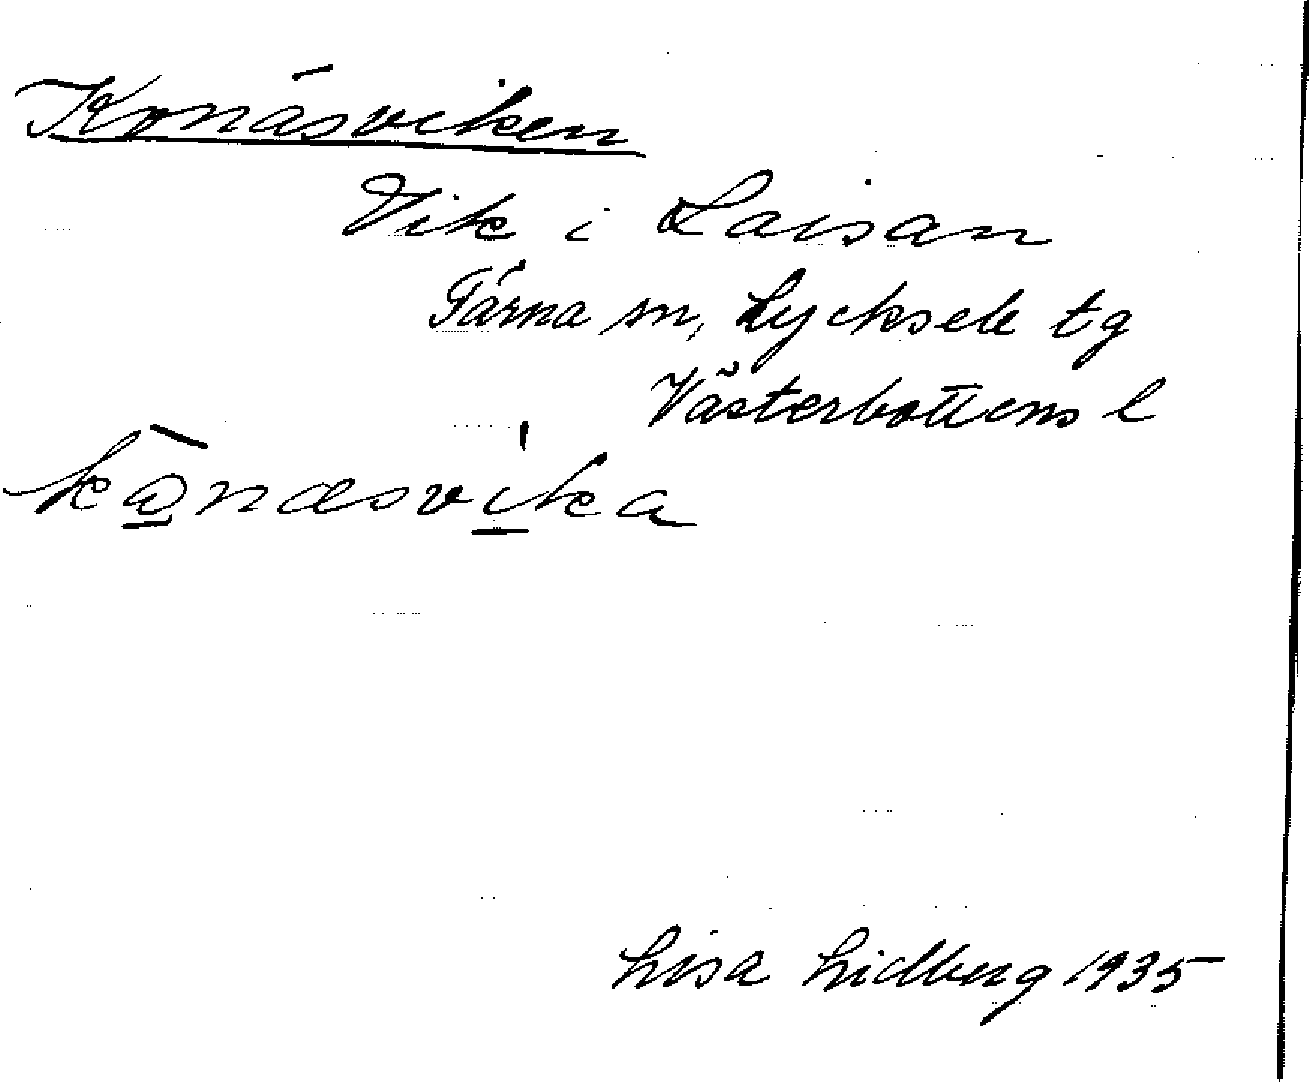 Konäsviken
Vik i Laisan
Tärna sn, Lycksele tg
Västerbottens l
Lisa Lidberg 1935